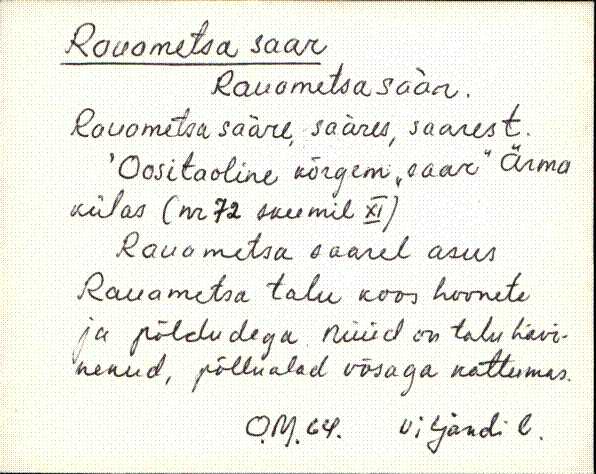 Rauametsa saar
Rauametsa sàar.
Rauametsa sàare, sàares, saarest.
'Oositaoline kõrgem „saar" Ärma
külas (nr 72 skeemil XI)
Rauametsa saarel asus
Rauametsa talu koos hoonete
ja põldudega. Nüüd on talu hävi-
nenud, põllualad võsaga kattumas.
O.M. 64. Viljandi l.